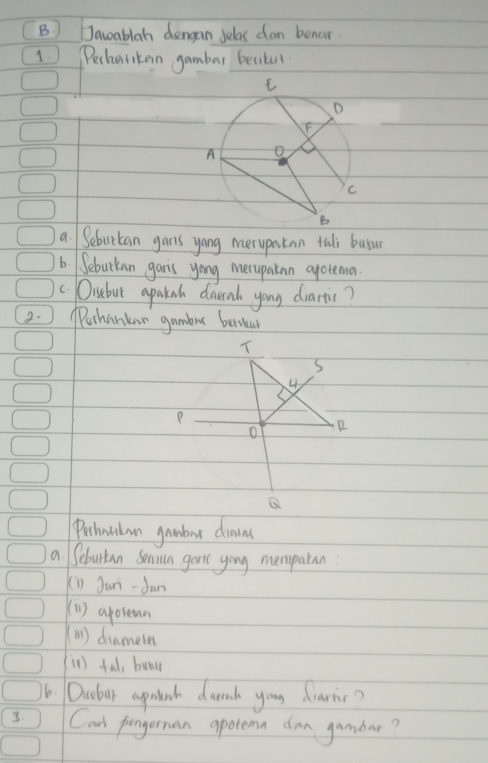 B. Jawablah dengan jelas dan benar.
1. Perhatikan gambar berikut.
E
D
F
A
O
C
B
a. Sebutkan garis yang merupakan tali busur
b. Sebutkan garis yang merupakan apotema.
c. Disebut apakah daerah yang diarsir?
2. Perhatikan gambar berikut
T
S
4
P
O
R
Q
Perhatikan gambar diatas
a Sebutkan semua garis yang merupakan :
(i) Jari - Jari
(ii) apotema
(iii) diameter
(iv) tali busur
b. Disebut apakah daerah yang diarsir?
3. Cari pengertian apotema dan gambar?